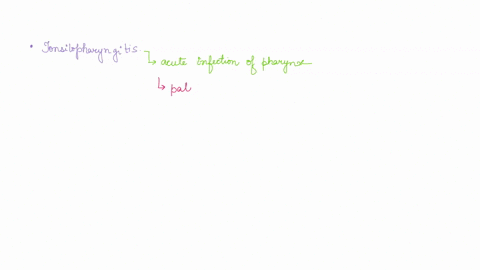 • Tonsilopharyngitis
↳ acute infection of pharynx
↳ pal